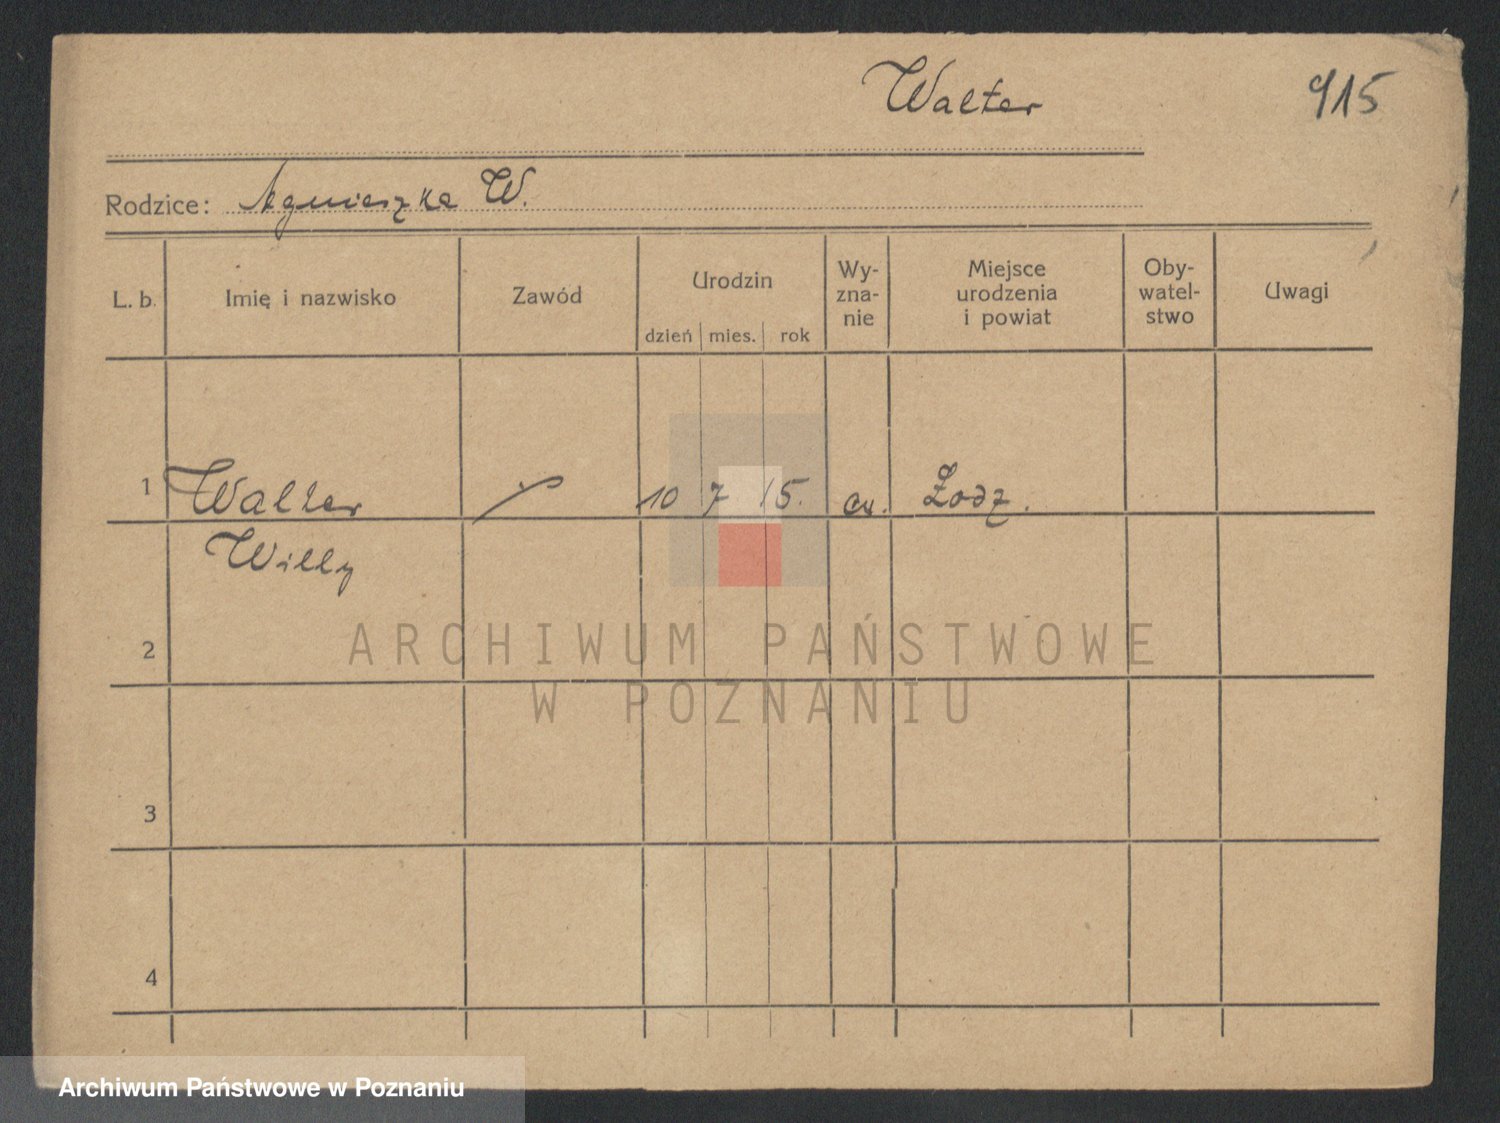 Walter 915
Rodzice: Agnieszka W.
L. b. Imię i nazwisko Zawód Urodzin dzień mies. rok Wy-zna-nie Miejsce urodzenia i powiat Oby-watel-stwo Uwagi
1 Walter 10 7 15. ew. Łodz.
Willy
2
3
4
ARCHIWUM PAŃSTWOWE
W POZNANIU
Archiwum Państwowe w Poznaniu